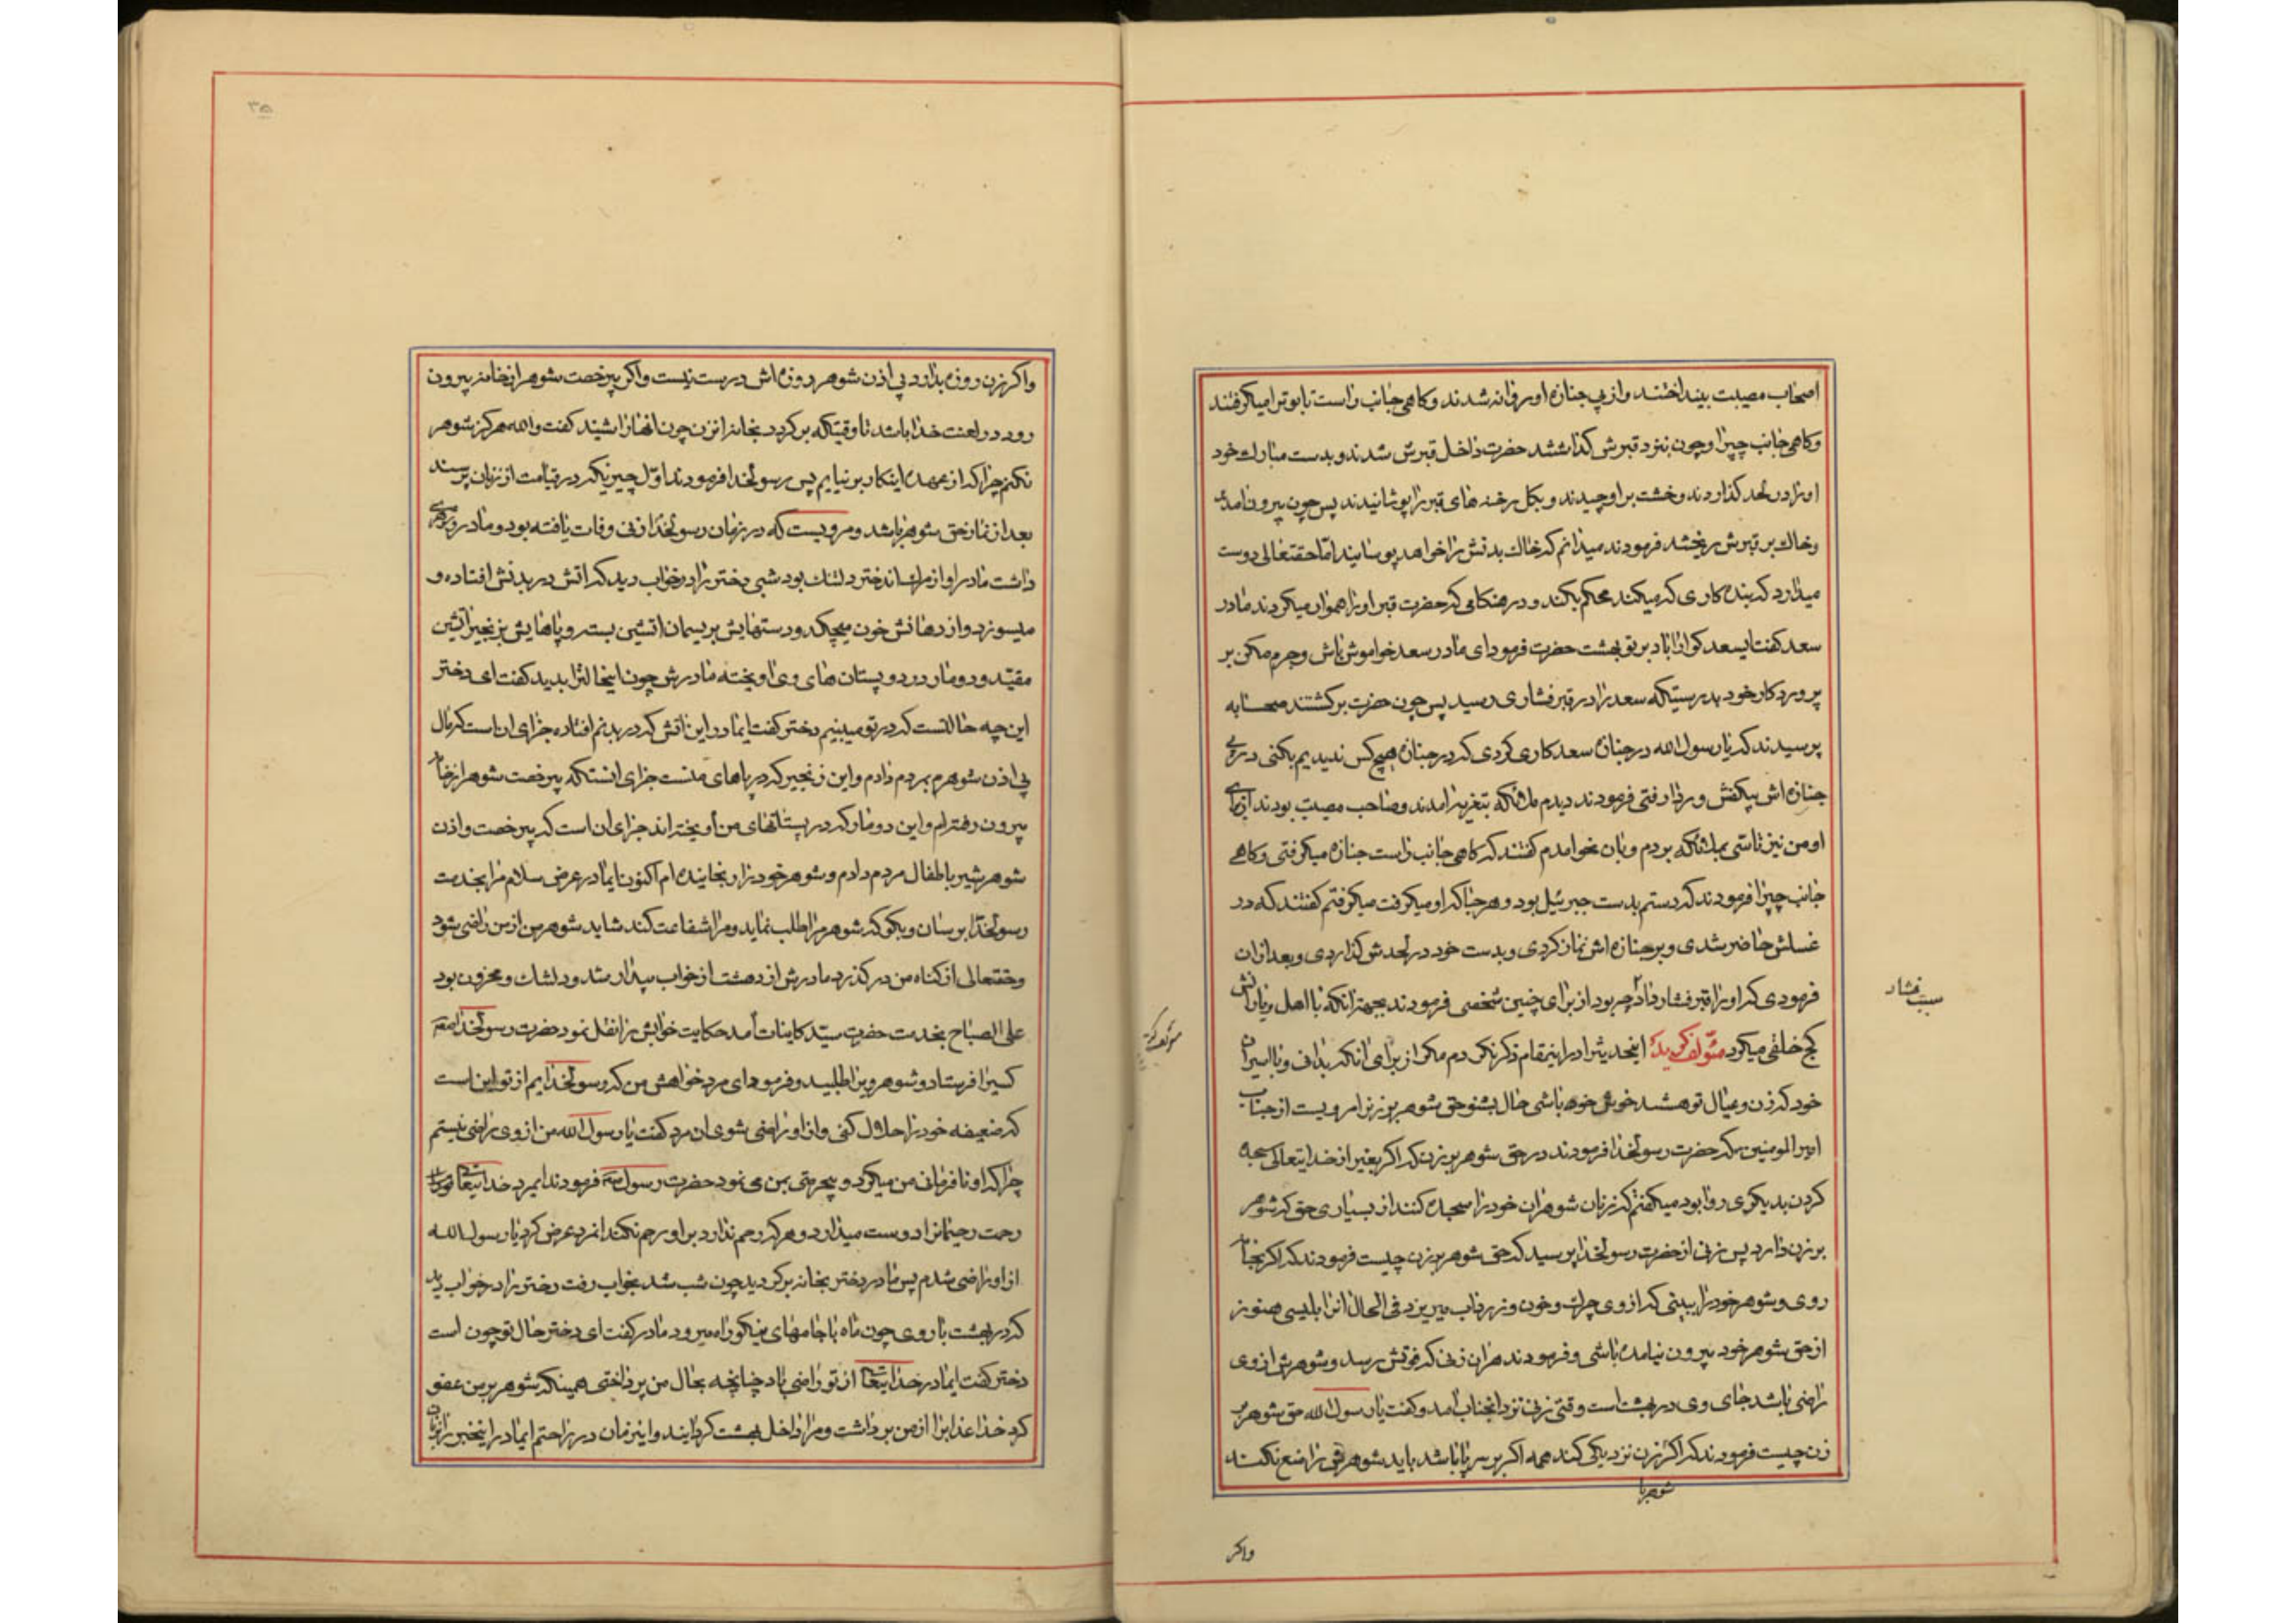 اصحاب مصیبت بینداختند و از پی جنازه او روانه شدند و کاهی جانب راست تابوترا میکرفتند
و کاهی جانب چپرا و چون بنزد قبرش کذاشتند حضرت داخل قبرش شدند و بدست مبارك خود
او را در لحد کذاردند و خشت بر او چیدند و بکل رخنه های قبر را پوشانیدند پس چون بیرون آمدند
و خاك بر قبرش ریخشد فرمودند میدانم که خاك بدنش را خواهد پوسانید اما حقتعالی دوست
میدارد که بنده کاری که میکند محکم بکند و در هنکامی که حضرت قبر او را هموار میکردند مادر
سعد کفت ایسعد کوارا باد بر تو بهشت حضرت فرمود ای مادر سعد خواموش باش و جرم مکن بر
پروردکار خود بدرستیکه سعد را در قبر فشاری رسید پس چون حضرت برکشتند صحابه
پرسیدند که یا رسول الله در جنازه سعد کاری کردی که در جنازه هیچ کس ندیدیم بکنی در پی
جنازه اش بیکفش و ردا رفتی فرمودند دیدم ملائکه بتعزیه امدند و صاحب مصیبت بودند از برای
او من نیز تاسی بملائکه بردم و بان نحو امدم کفتند که کاهی جانب راست جنازه میکرفتی و کاهی
جانب چپرا فرمودند که دستم بدست جبرئیل بود و هر جا که او میکرفت میکرفتم کفتند که در
غسلش حاضر شدی و بر جنازه اش نماز کردی و بدست خود در لحدش کذاردی و بعد از ان
فرمودی که او را قبر فشار داد چه بود از برای چنین شخصی فرمودند بجهة انکه با اهل و یارانش
کج خلقی میکرد مئولف کوید اینحدیث را در اینمقام ذکر نکردم مکر از برای انکه بدانی و با اسیران
خود که زن و عیال تو هشند خوش خوه باشی حال بشنو حق شوهر بر زنرا مرویست از جناب
امیر المومنین که حضرت رسولخدا فرمودند در حق شوهر بر زن که اکر بغیر از خدایتعالی سجده
کردن بدیکری روا بود میکفتم که زنان شوهران خود را سجده کنند از بسیاری حق که شوهر
بر زن دارد پس زنی از حضرت رسولخدا پرسید که حق شوهر بر زن چیست فرمودند که اکر بخانه
روی و شوهر خود را ببینی که از وی چرك و خون و زرداب میریزد فی الحال انرا بلیسی هنوز
از حق شوهر خود بیرون نیامده باشی و فرمودند هر ان زنی که فوتش رسد و شوهرش از وی
راضی باشد جای وی در بهشت است وقتی زنی نزد انجناب امد و کفت یا رسول الله حق شوهر بر
زن چیست فرمودند که اکر زن نزدیکی کند همه اکر بر سر پا باشد باید شوهرش را منع نکند
شوهر با
واکر
سبب فشار
مئولف کوید
۳۵
واکر زن روزه بدارد بی اذن شوهر روزه اش درست نیست و اکر بیرخصت شوهر از خانه بیرون
رود در لعنت خدا باشد تا وقتیکه برکردد بخانه انزن چون انها را شنید کفت والله هرکز شوهر
نکنم چرا که از عهده اینکار بر نیایم پس رسولخدا فرمودند اول چیزیکه در قیامت از زنان پرسند
بعد از نماز حق شوهر باشد و مرویست که در زمان رسولخدا زنی وفات یافته بود و مادر پیری
داشت مادر او از مردن اندختر دلتنك بود شبی دختر را در خواب دید که اتش در بدنش افتاده و
میسوزد و از دهانش خون میچکد و دستهایش بریسمان اتشین بسته و پاهایش بزنجیر اتشین
مقید و دو مار در دو پستان های وی اویخته مادرش چون اینحالترا بدید کفت ای دختر
این چه حالتست که در تو میبینم دختر کفت ایمادر این اتش که در بدنم افتاده جزای ان است که مال
بی اذن شوهرم بمردم دادم و این زنجیر که در پاهای منست جزای انستکه بیرخصت شوهر از خانه
بیرون رفته ام و این دو مار که در پستانهای من اویخته اند جزای ان است که بیرخصت و اذن
شوهر شیر باطفال مردم دادم و شوهر خود را رنجانیده ام اکنون ایمادر عرض سلام مرا بخدمت
رسولخدا برسان و بکو که شوهر مرا طلب نماید و مرا شفاعت کند شاید شوهر من از من راضی شود
و حقتعالی از کناه من در کذرد مادرش از دهشت از خواب بیدار شد و دلشك و محزون بود
علی الصباح بخدمت حضرت سید کاینات آمد حکایت خوابش را نقل نمود حضرت رسولخدا
کسیرا فرستاد و شوهر ویرا طلبید و فرمود ای مرد خواهش من که رسولخدایم از تو این است
که ضعیفه خود را حلال کنی و از او راضی شوی ان مرد کفت یا رسول الله من از وی راضی نیستم
چرا که او نافرمانی من میکرد و بیحرمتی بمن می نمود حضرت رسول فرمودند ایمرد خدایتعالی
رحمت رحیمانرا دوست میدارد و هر که رحم ندارد بر او رحم نکند انمرد عرض کرد یا رسول الله
از او راضی شدم پس مادر دختر بخانه برکردید چون شب شد بخواب رفت دختر را در خواب دید
که در بهشت با روی چون ماه با جامهای نیکو راه میرود مادر کفت ای دختر حال تو چون است
دختر کفت ایمادر خدایتعالی از تو راضی باد چنانچه بحال من پرداختی همینکه شوهر بر من عفو
کرد خدا عذابرا از من برداشت و مرا داخل بهشت کردانید و اینزمان در راحتم ایمادر اینخبر را بزنان